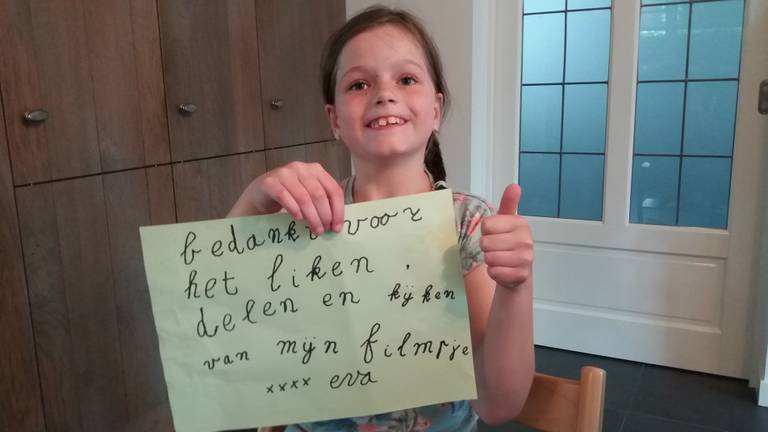 bedankt voor
het liken,
delen en kijken
van mijn filmpje
xxxx eva